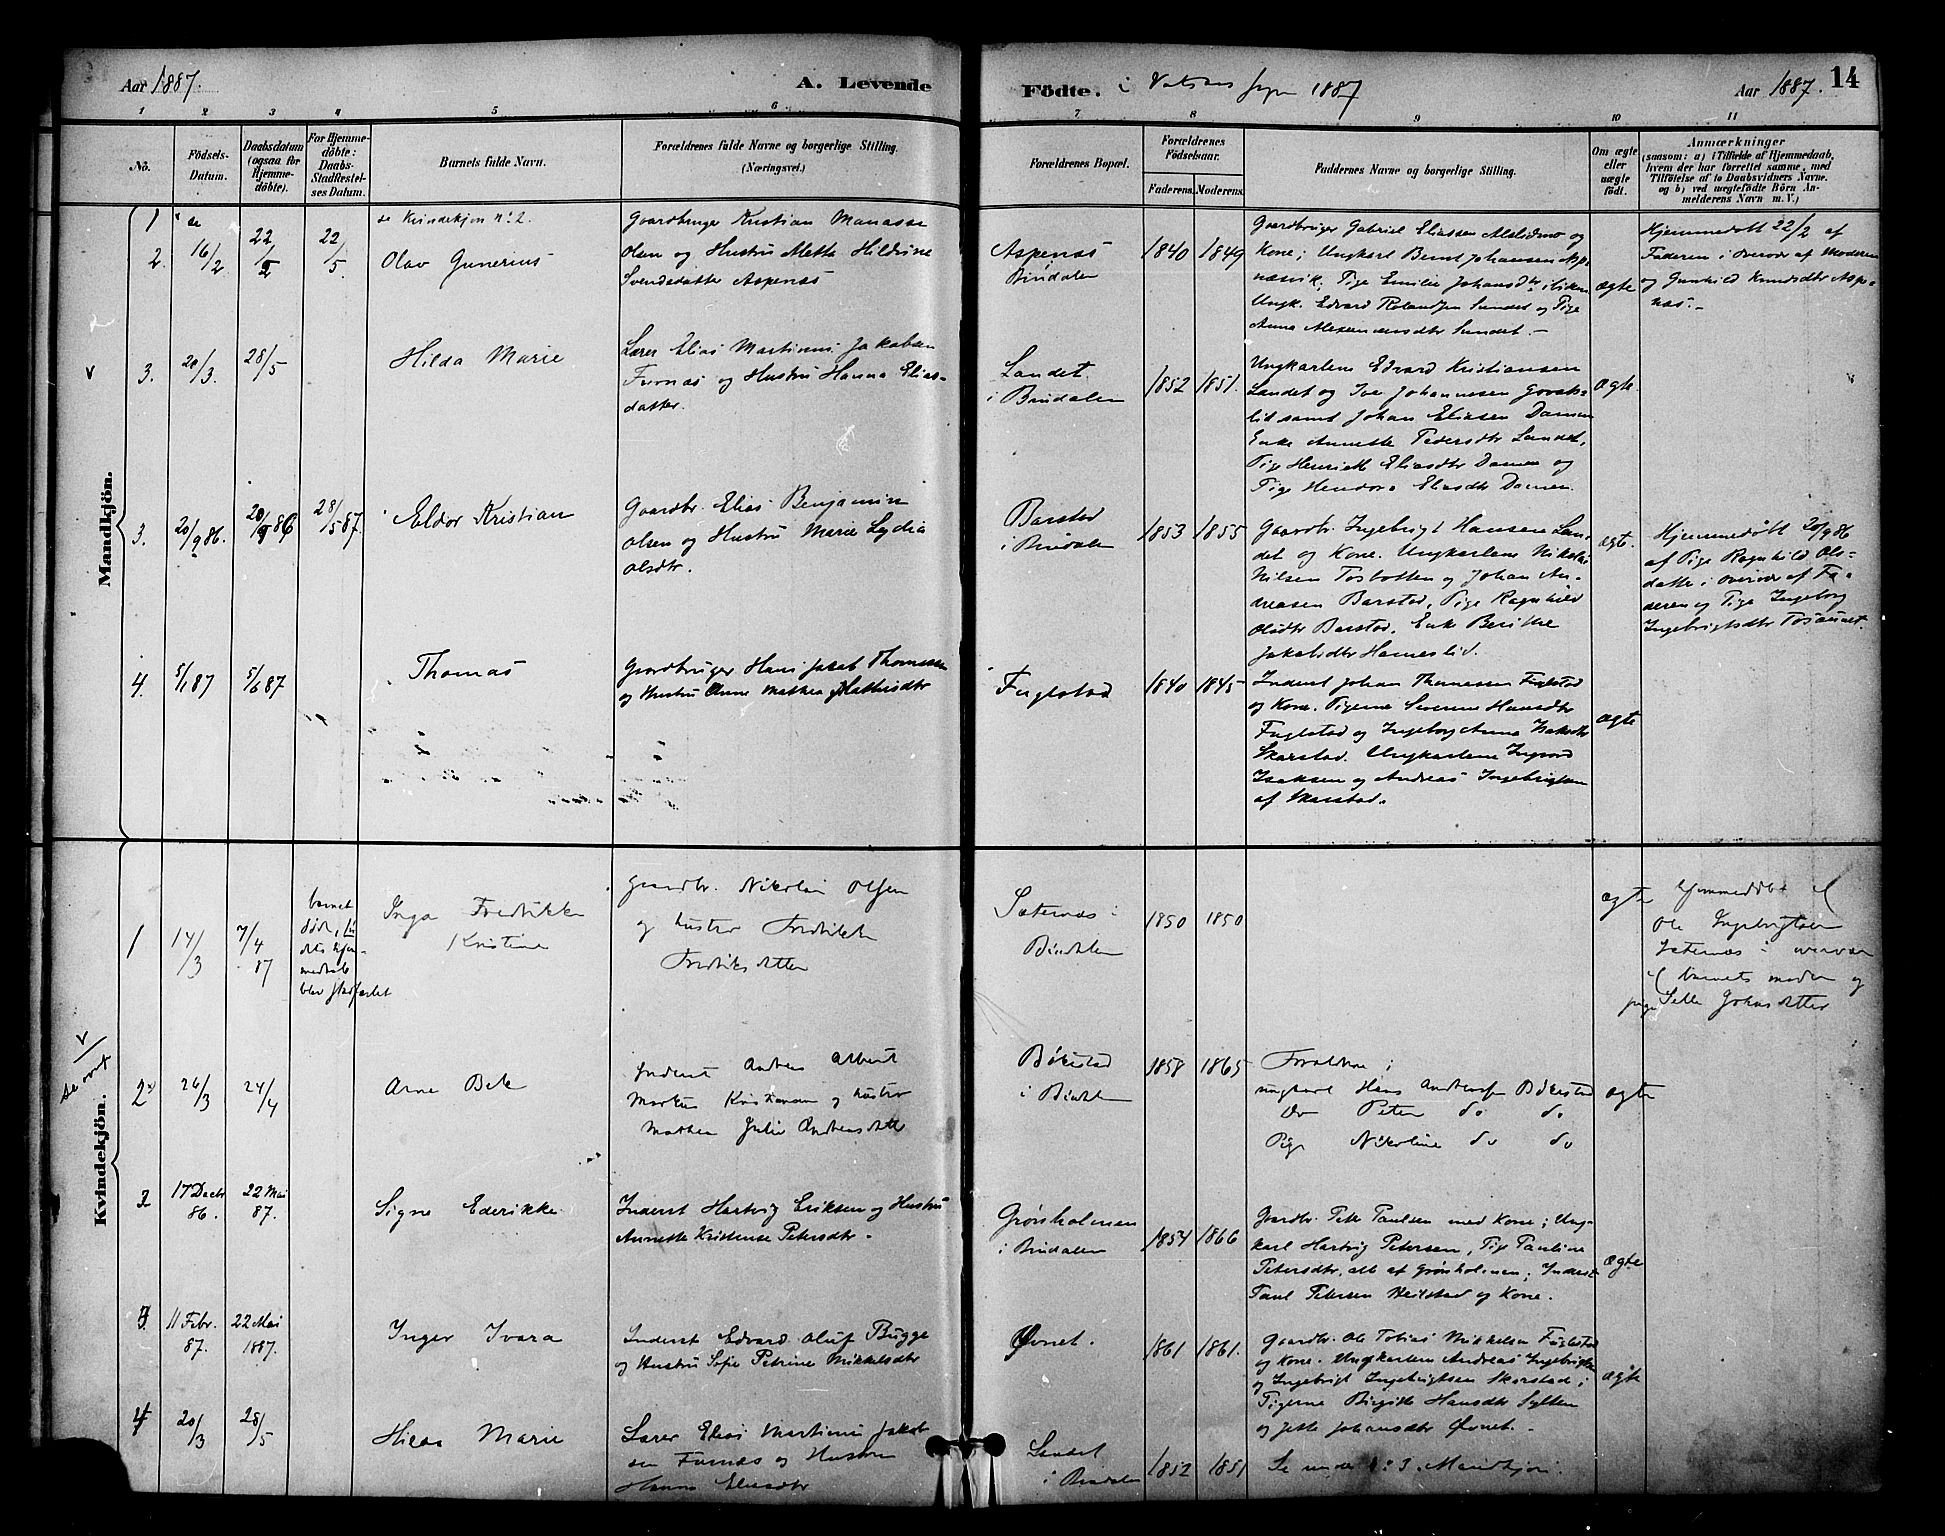 Aar 1887.
A. Levende
Födte. i Vatsaas sogn 1887
Aar 1887. 14
1 2 3 4 5 6 7 8 9 10 11
No.
Födsels-
Datum.
Daabsdatum
(ogsaa for
Hjemme-
döbte).
For Hjemme-
döbte:
Daabs-
Stadfæstel-
ses Datum.
Barnets fulde Navn.
Forældrenes fulde Navne og borgerlige Stilling.
(Næringsvei.)
Forældrenes Bopæl.
Forældrenes
Födselsaar.
Faderens. Moderens.
Faddernes Navne og borgerlige Stilling.
Om ægte
eller
uægte
födt.
Anmærkninger
(saasom: a) i Tilfælde af Hjemmedaab,
hvem der har forrettet samme, med
Tilföielse af to Daabsvidners Navne.
og b) ved uægtefödte Börn An-
melderens Navn m. V.)
Mandkjön.
1 se
se Kvindekjøn nº 2.
2. 16/2 22/2 22/5.
Olav Gunerius
Gaardbruger Kristian Manasse
Olsen og Hustru Metta Hildrine
Svendsdatter Aspenæs
Aspenæs
Bindalen
1840 1849
Gaardbruger Gabriel Eliassen og
Kone; Ungkarl Bernt Johansen Asp-
næsvik, Pige Emilie Johansdtr
Ungk. Edvard Sundet og Pige
Anna Sundet. –
ægte
Hjemmedøbt 22/2 af
Faderen i overvær af Moderen
og Gunhild Knudsdtr Aspe-
næs. –
v 3. 20/3. 28/5
Hilda Marie
Lærer Elias Martinus Jakobsen
Furnæs og Hustru Hanna Elias-
datter.
Landet
i Bindalen
1852 1851.
Ungkarlene Edvard Kristiansen
Landet og Johannesen
samt Johan Eliasen
Enke Annette Pedersdtr Landet,
Pige Eliasdtr og
Pige Eliasdtr
ægte.
3. 20/9 86. 20/9 86 28/5 87.
Eldor Kristian
Gaardbr. Elias Benjamin
Olsen og Hustru Marie Lydia
Olsdtr.
Barstad
i Bindalen
1853 1855
Gaardbr. Ingebrigt Hansen Lan-
det og Kone. Ungkarlene Nikolai
Nilsen Tosbotten og Johan An-
dreasen Barstad, Pige Ragnhild
Olsdtr Barstad, Enke Berithe
Jakobsdtr
ægte.
Hjemmedøbt 20/9 86
af Pige Ragnhild Ols-
datter i overvær af Fa-
deren og Pige Ingeborg
Ingebrigtsdtr
4. 5/1 87 5/6 87
Thomas
Gaardbruger Hans Jakob Thomassen
og Hustru Anne Mathea
Fuglstad
1840 1845
Inderst Johan Thomessen Fuglstad
og Kone. Pigerne Severine Hansdtr
Fuglstad og Ingeborg Anna Isaksdtr
Skarstad. Ungkarlene Ingvard
Isaksen og Andreas Ingebrigtsen
af Skarstad.
ægte
Kvindekjön.
1 14/3 7/4 87
barnet
døde,
hjem-
medaab
blev stadfæstet
Inga Fredrikke
Kristine
Gaardbr. Nikolai Olsen
og hustru Fredrikke
Fredriksdatter
Sæternæs i
Bindalen
1850 1850
ægte
Hjemmedøbt af
Ole Ingebrigtsen
Sæternæs i overvær
af barnets moder og
pige Johnsdatter
v
se ovt
2) 26/3 24/4
Arne Bek
Inderst Andreas Albert
Markus Kristiansen og hustru
Mathea Julie Andreasdatter
Bøkestad
i Bindalen
1858 1865
Forældrene;
ungkarl Hans Andreassen Bøkestad
Do Peter do do
Pige Nikoline do do
ægte
2 17 Decbr 86. 22 Mai 87.
Signe Ederikke
Inderst Hartvig Eriksen og Hustru
Annette Kristense Petersdtr.
Grønholmen
i Bindalen
1854 1866
Gaardbr. Peter Paulsen med Kone; Ung-
karl Hartvig Petersen, Pige Pauline
Petersdtr, alle af Grønholmen; Inderst
Paul Petersen Heilstad og Kone.
ægte
3. 11 Febr. 87. 22 Mai 1887.
Inger Ivara
Inderst Edvard Oluf Bugge
og Hustru Sofie Petrine Mikkelsdtr
Øvnet.
1861 1861.
Gaardbr. Ole Tobias Mikkelsen Fuglstad
og Kone. Ungkarlene Andreas Ingebrigtsen
og Ingebrigt Ingebrigtsen Skarstad;
Pigerne Birgitte Hansdtr Sylten
og Jette Johansdtr Øvnet. –
ægte
4 20/3 28/5
Hilda Marie
Lærer Elias Martinus Jakob-
sen Furnæs og Hustru
Hanna Eliasdtr
Landet
i Bindalen
1852 1851
Se under nº 3. Mandkjøn.